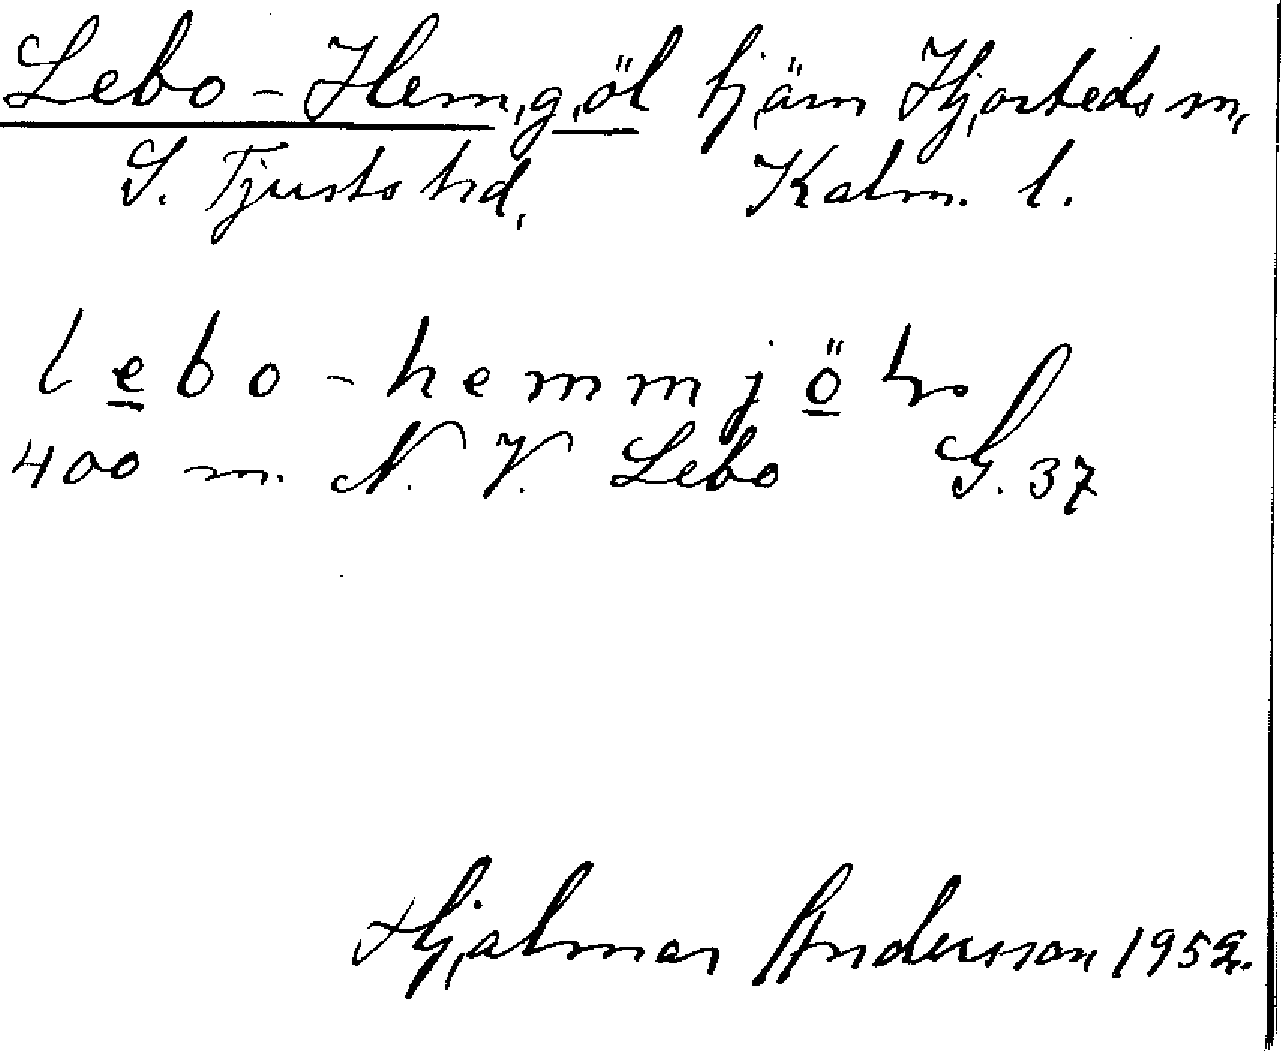 Lebo - Hemgöl tjärn Hjorteds sn,
S. Tjusts hd, Kalm. l.
lebo - hemmjö
400 m. N. V. Lebo G. 37
Hjalmar Andersson 1952.